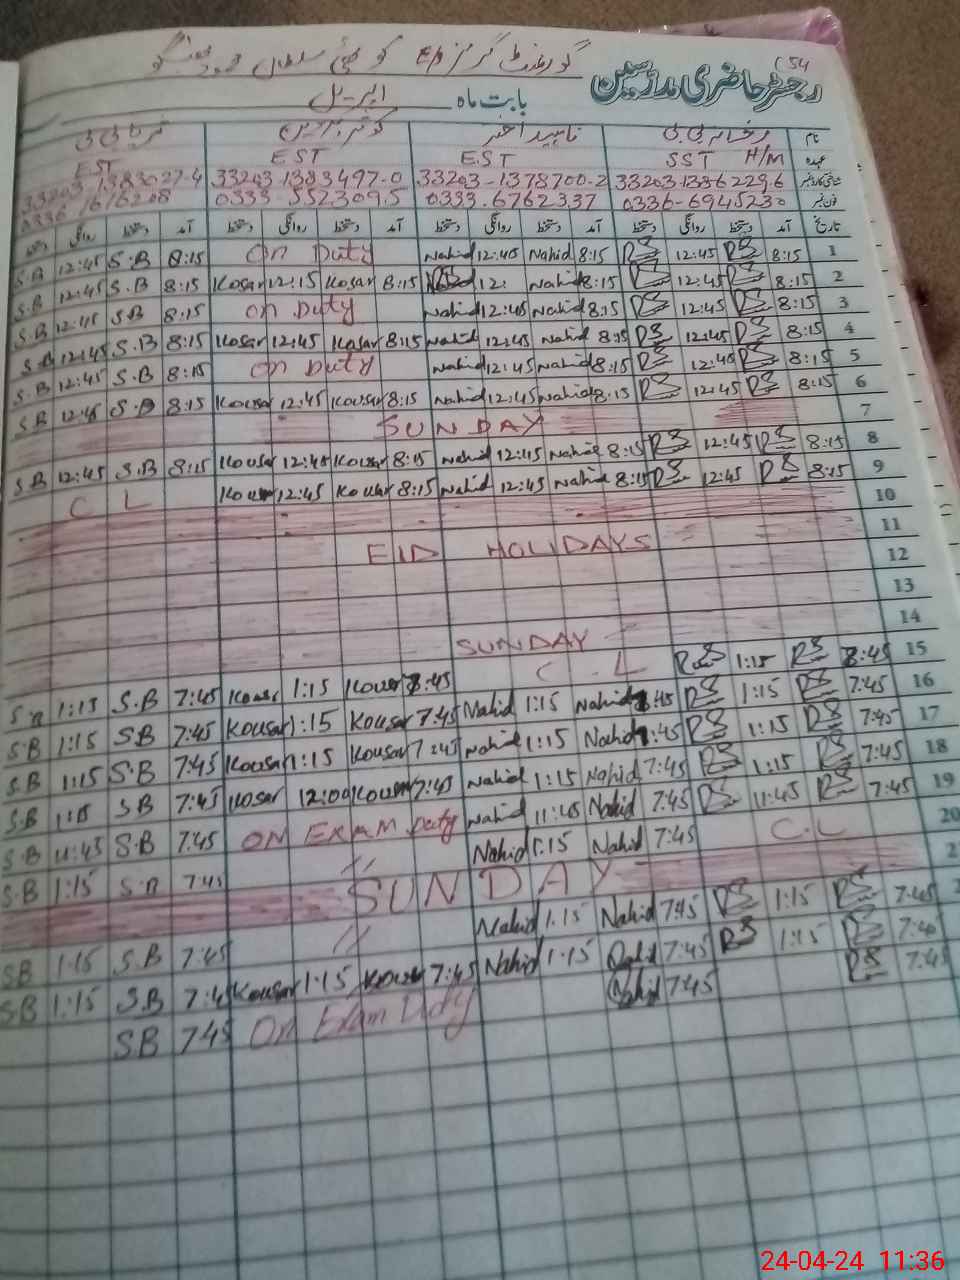 54
رجسٹر حاضری مدرسین
گورنمنٹ گرلز E/S کوٹھی سلطان محمود
بابت ماہ اپریل
نام رخسانہ بی بی ناہید اختر کوثر پروین
عہدہ SST H/M EST EST EST
33203-1386229-6 33203-1378700-2 33203-1383497-0 33203-1383027-4
فون نمبر 0336-6945230 0333-6762337 0333-5523095 0336
تاریخ آمد دستخط روانگی دستخط آمد دستخط روانگی دستخط آمد دستخط روانگی دستخط آمد دستخط روانگی دستخط
1 8:15 RS 12:45 RS 8:15 Nahid 12:45 Nahid On Duty 8:15 S.B 12:45 S.B
2 8:15 RS 12:45 RS 8:15 Nahid 12: 8:15 Kosar 12:15 Kosar 8:15 S.B 12:45 S.B
3 8:15 RS 12:45 RS 8:15 Nahid 12:45 Nahid On Duty 8:15 S.B 12:45 S.B
4 8:15 RS 12:45 RS 8:15 Nahid 12:45 Nahid 8:15 Kosar 12:45 Kosar 8:15 S.B 12:45 S.B
5 8:15 RS 12:45 RS 8:15 Nahid 12:45 Nahid On Duty 8:15 S.B 12:45 S.B
6 8:15 RS 12:45 RS 8:15 Nahid 12:45 Nahid 8:15 Kousar 12:45 Kousar 8:15 S.B 12:45 S.B
7 SUNDAY
8 8:15 RS 12:45 RS 8:15 Nahid 12:45 Nahid 8:15 Kousar 12:45 Kousar 8:15 S.B 12:45 S.B
9 8:15 RS 12:45 RS 8:15 Nahid 12:45 Nahid 8:15 Kousar 12:45 Kousar C L
10
11
12 EID HOLIDAYS
13
14 SUNDAY
15 8:45 RS 1:15 RS C.L 8:45 Kouser 1:15 Kouser 7:45 S.B 1:15 S.B
16 7:45 RS 1:15 RS 8:45 Nahid 1:15 Nahid 7:45 Kousar 1:15 Kousar 7:45 SB 1:15 S.B
17 7:45 RS 1:15 RS 7:45 Nahid 1:15 Nahid 7:45 Kousar 1:15 Kousar 7:45 S.B 1:15 S.B
18 7:45 RS 1:15 RS 7:45 Nahid 1:15 Nahid 7:45 Kousar 12:00 Kosar 7:45 SB 1:15 S.B
19 7:45 RS 11:45 RS 7:45 Nahid 11:45 Nahid ON EXAM Duty 7:45 S.B 11:45 S.B
20 C.L 7:45 Nahid 1:15 Nahid // 7:45 S.B 1:15 S.B
2 SUNDAY
2 7:45 RS 1:15 RS 7:45 Nahid 1:15 Nahid // 7:45 S.B 1:15 SB
7:45 RS 1:15 RS 7:45 Nahid 1:15 Nahid 7:45 Kousar 1:15 Kousar 7:45 S.B 1:15 S.B
7:45 RS 7:45 Nahid On Exam Duty 7:45 SB
24-04-24 11:36